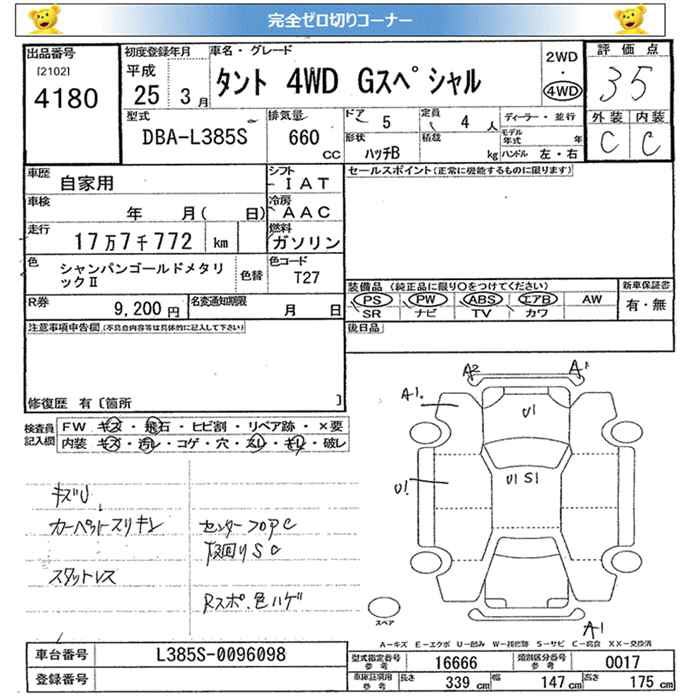 完全ゼロ切りコーナー
出品番号
[2102]
4180
初度登録年月
平成
25 3月
車名・グレード
タント 4WD Gスペシャル
2WD
・
4WD
評価点
35
外装 内装
C C
型式
DBA-L385S
排気量
660 CC
ドア 5
定員 4 人
形状 ハッチB
積載 kg
ディーラー・並行
モデル年式 年
ハンドル 左・右
車歴 自家用
シフト IAT
車検 年 月( 日)
冷房 AAC
走行 17万7千772 km
燃料 ガソリン
色 シャンパンゴールドメタリックⅡ
色替
色コード T27
R券 9,200円
名変通知期限 月 日
セールスポイント(正常に機能するものに限ります)
装備品 (純正品に限り○をつけてください)
PS PW ABS エアB AW
SR ナビ TV カワ
新車保証書
有・無
後日品
注意事項申告欄(不具合内容等は具体的に記入して下さい)
修復歴 有〔箇所 〕
検査員記入欄
FW キズ・飛石・ヒビ割・リペア跡・×要
内装 キズ・汚レ・コゲ・穴・スレ・キレ・破レ
キズU
カーペットスリキレ
スタットレス
センターフロアC
下回りSC
Rスポ.色ハゲ
A2 A1
A1.
U1
U1 S1
U1
A1
スペア
A-キズ E-エクボ U-凹み W-補修跡 S-サビ C-腐食 XX-交換済
車台番号 L385S-0096098
登録番号
型式指定番号 参考 16666
類別区分番号 参考 0017
車検証項目 参考 長さ 339 cm 幅 147 cm 高さ 175 cm